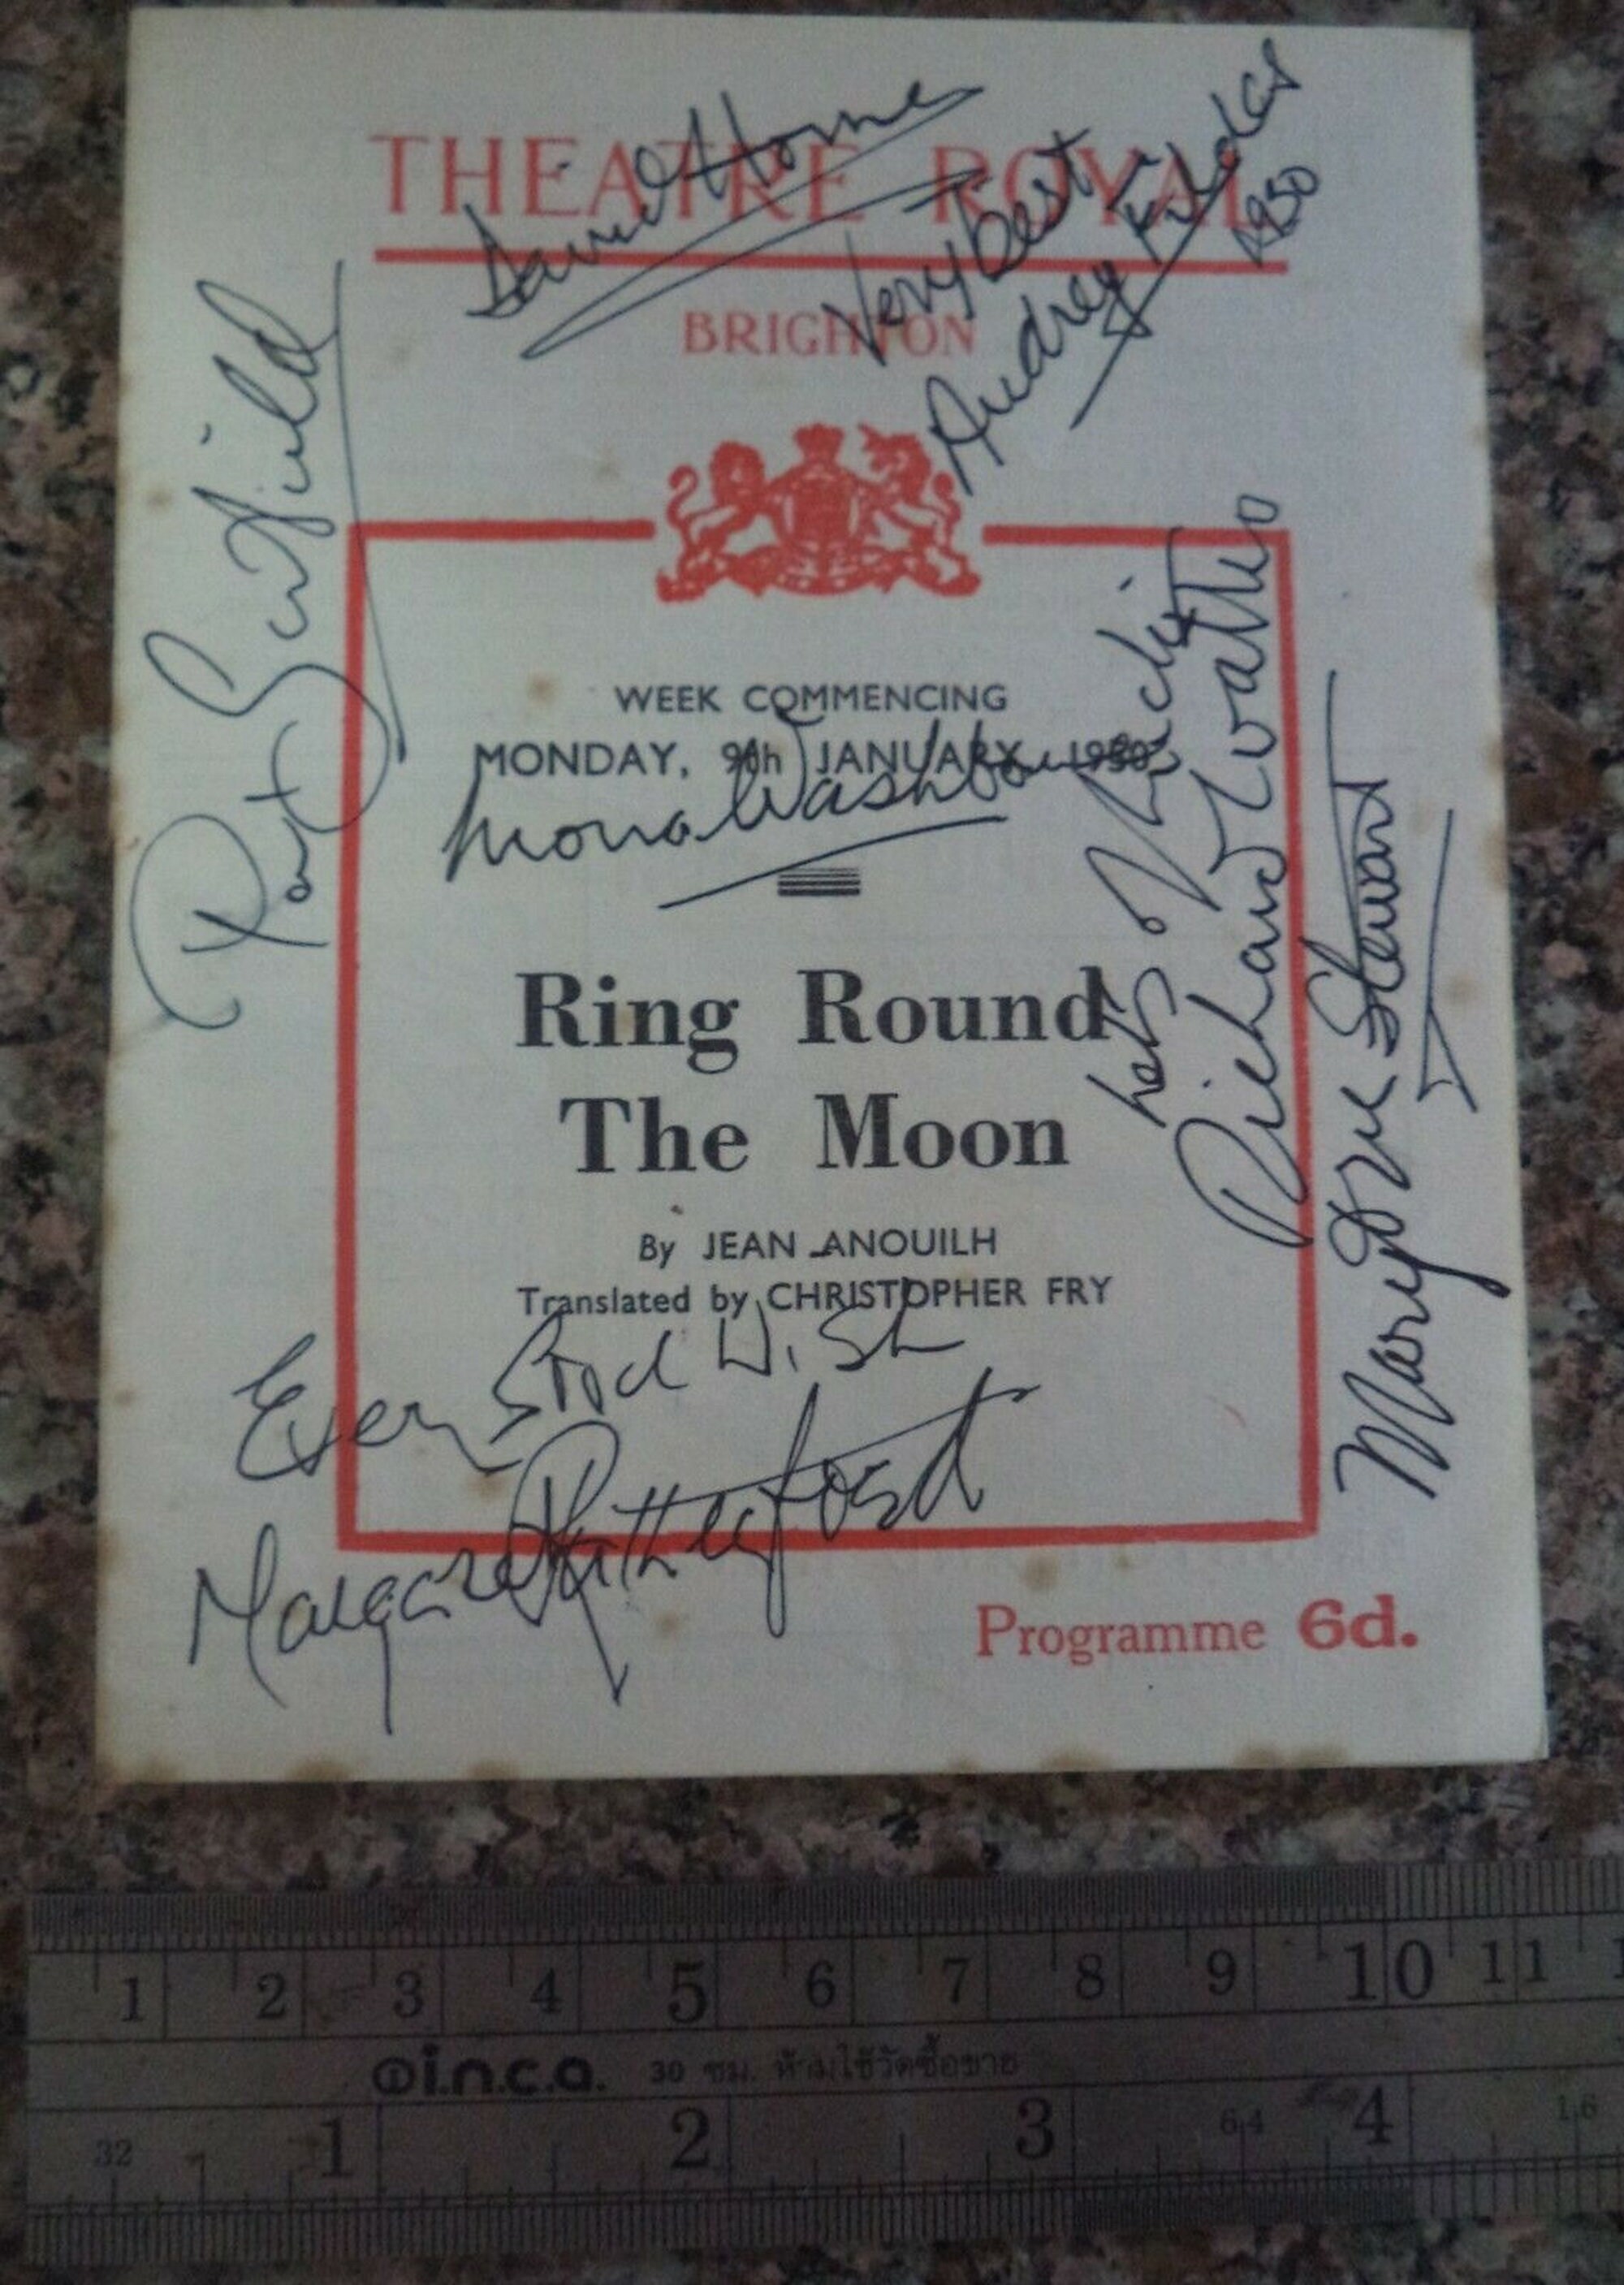 THEATRE ROYAL
BRIGHTON
David Horne
Very best
Audrey Fildes
1950
WEEK COMMENCING
MONDAY, 9th JANUARY 1950
Mona Washbourne
Ring Round
The Moon
By JEAN ANOUILH
Translated by CHRISTOPHER FRY
Richard Wattis
Marjorie Stewart
Every Good Wish
Margaret Rutherford
Programme 6d.
1 2 3 4 5 6 7 8 9 10 11
i.n.c.a. 30 ซม. ห้ามใช้วัดซื้อขาย
32 1 2 3 64 4